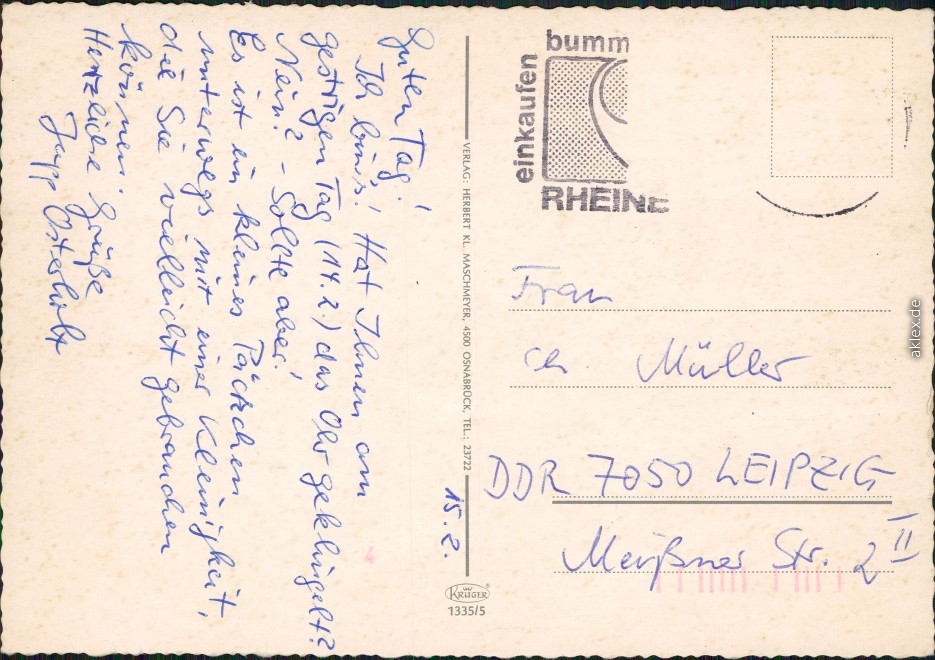 Guten Tag!
Ich bin's! Hat Ihnen am
gestrigen Tag (14.2.) das Ohr geklingelt?
Nein? - Sollte aber!
Es ist ein kleines Päckchen
unterwegs mit einer Kleinigkeit,
die Sie vielleicht gebrauchen
können.
Herzliche Grüße
Jupp
15.2.
VERLAG: HERBERT KL. MASCHMEYER, 4500 OSNABRÜCK, TEL.: 23722
KRÜGER
1335/5
einkaufen
bumm
RHEINE
Frau
Ch. Müller
DDR 7050 LEIPZIG
Meißner Str. 2 II
aklex.de